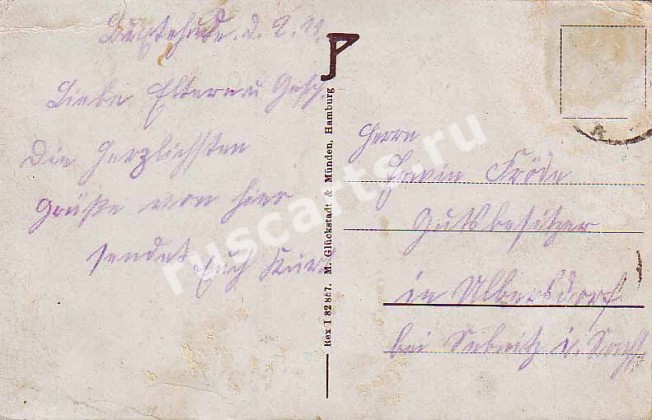 Buxtehude. d. 2.
Liebe Eltern u Gesch
Die herzlichsten
Grüße von hier
sendet Euch Kurt
Rex I 82 867. M. Glückstadt & Münden, Hamburg
Herrn
Erwin Fröde
Gutsbesitzer
in Ulbersdorf
bei Sebnitz i. Sachs.
ruscarts.ru